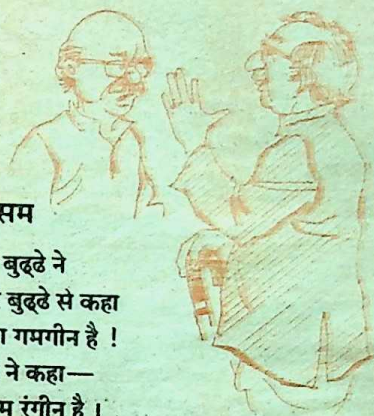 सम
बुढ्ढे ने
बुढ्ढे से कहा
गमगीन है !
ने कहा—
रंगीन है ।